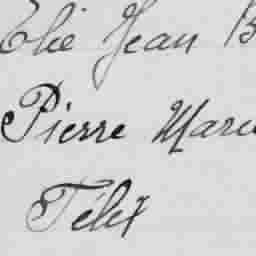 Elie Jean B
Pierre Mari
Félix